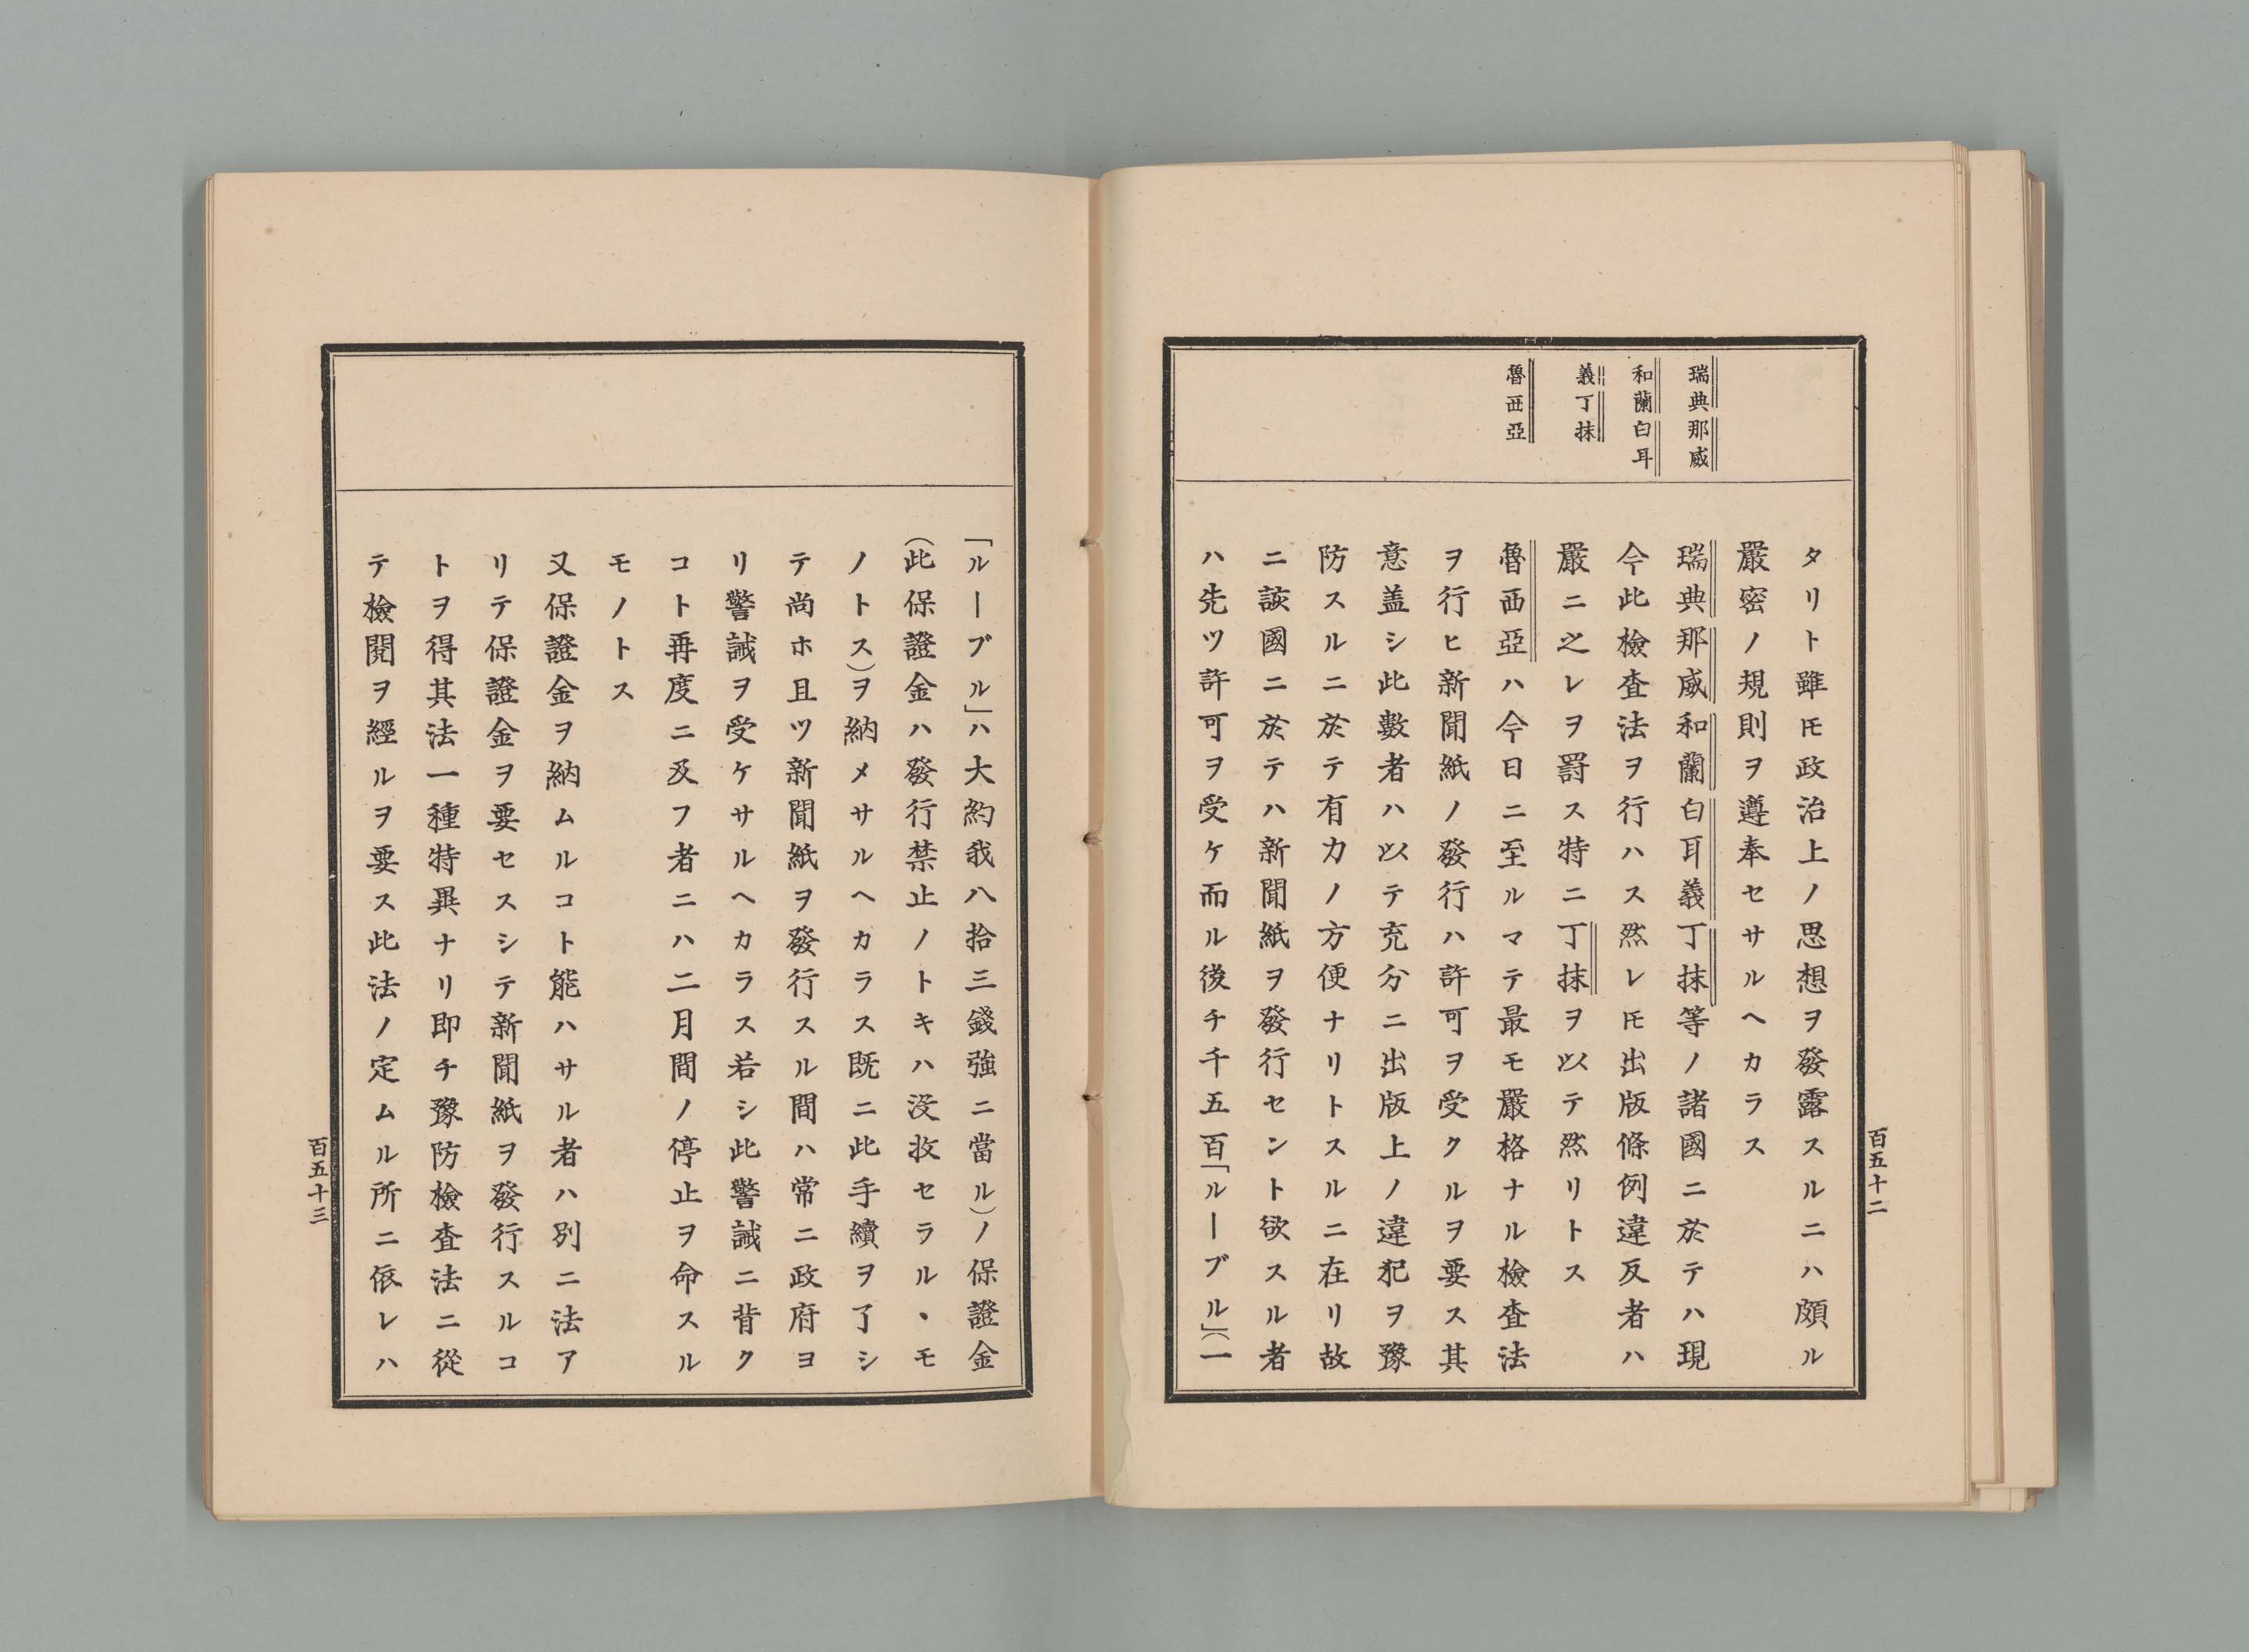 百五十二
瑞典那威
和蘭白耳
義丁抹
魯西亞
タリト雖𪜈政治上ノ思想ヲ發露スルニハ頗ル
嚴密ノ規則ヲ遵奉セサルヘカラス
瑞典那威和蘭白耳義丁抹等ノ諸國ニ於テハ現
今此檢査法ヲ行ハス然レ𪜈出版條例違反者ハ
嚴ニ之レヲ罸ス特ニ丁抹ヲ以テ然リトス
魯西亞ハ今日ニ至ルマテ最モ嚴格ナル檢査法
ヲ行ヒ新聞紙ノ發行ハ許可ヲ受クルヲ要ス其
意盖シ此數者ハ以テ充分ニ出版上ノ違犯ヲ豫
防スルニ於テ有力ノ方便ナリトスルニ在リ故
ニ該國ニ於テハ新聞紙ヲ發行セント欲スル者
ハ先ツ許可ヲ受ケ而ル後チ千五百「ルーブル」(一
「ルーブル」ハ大約我八拾三錢強ニ當ル)ノ保證金
(此保證金ハ發行禁止ノトキハ没收セラルヽモ
ノトス)ヲ納メサルヘカラス既ニ此手續ヲ了シ
テ尚ホ且ツ新聞紙ヲ發行スル間ハ常ニ政府ヨ
リ警誡ヲ受ケサルヘカラス若シ此警誡ニ背ク
コト再度ニ及フ者ニハ二月間ノ停止ヲ命スル
モノトス
又保證金ヲ納ムルコト能ハサル者ハ別ニ法ア
リテ保證金ヲ要セスシテ新聞紙ヲ發行スルコ
トヲ得其法一種特異ナリ即チ豫防檢査法ニ從
テ檢閱ヲ經ルヲ要ス此法ノ定ムル所ニ依レハ
百五十三